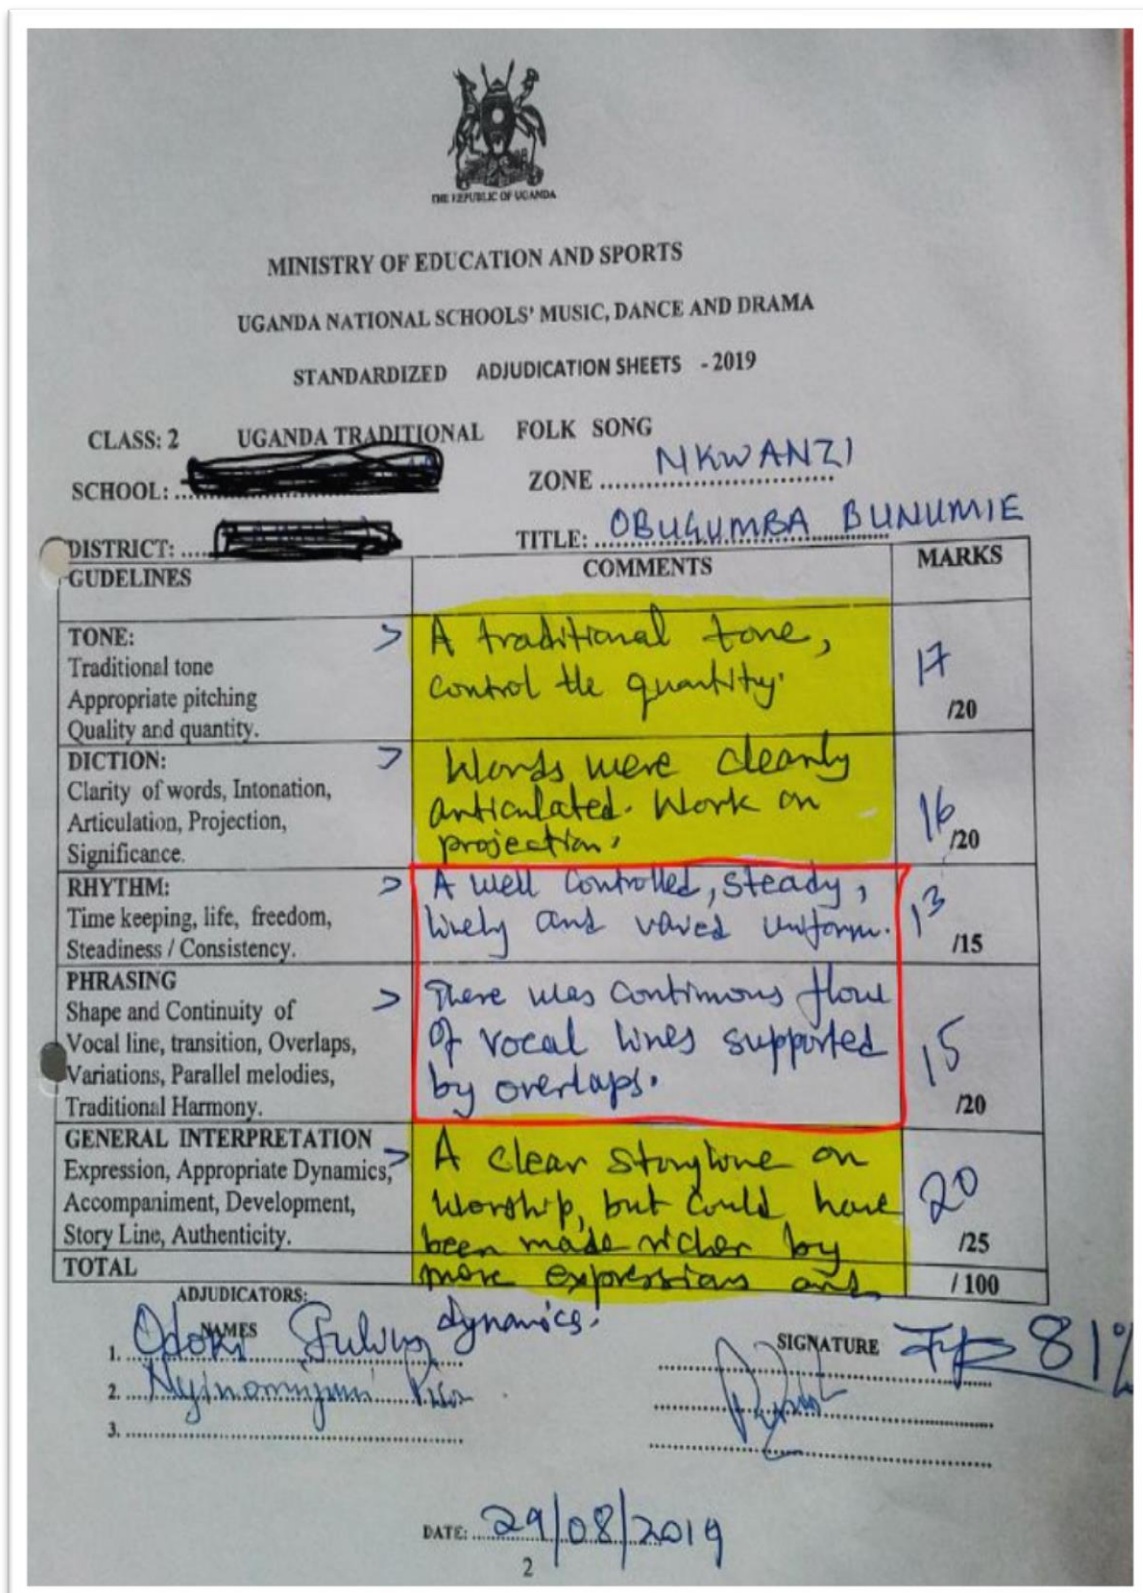 THE REPUBLIC OF UGANDA
MINISTRY OF EDUCATION AND SPORTS
UGANDA NATIONAL SCHOOLS' MUSIC, DANCE AND DRAMA
STANDARDIZED ADJUDICATION SHEETS - 2019
CLASS: 2 UGANDA TRADITIONAL FOLK SONG
SCHOOL: ZONE NKWANZI
DISTRICT: TITLE: OBUGUMBA BUNUMIE
GUDELINES COMMENTS MARKS
TONE:
Traditional tone
Appropriate pitching
Quality and quantity.
> A traditional tone,
control the quantity.
17
/20
DICTION:
Clarity of words, Intonation,
Articulation, Projection,
Significance.
> Words were clearly
articulated. Work on
projection.
16
/20
RHYTHM:
Time keeping, life, freedom,
Steadiness / Consistency.
> A well controlled, steady,
lively and varied uniform.
13
/15
PHRASING
Shape and Continuity of
Vocal line, transition, Overlaps,
Variations, Parallel melodies,
Traditional Harmony.
> There was continuous flow
of vocal lines supported
by overlaps.
15
/20
GENERAL INTERPRETATION
Expression, Appropriate Dynamics,
Accompaniment, Development,
Story Line, Authenticity.
> A clear storyline on
worship, but could have
been made richer by
more expressions and
dynamics.
20
/25
TOTAL / 100
81%
ADJUDICATORS:
NAMES SIGNATURE
1. Odoki
2.
3.
DATE: 29/08/2019
2